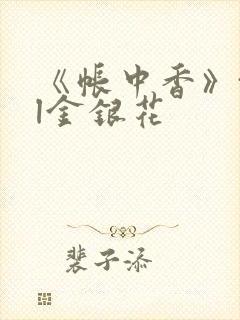 《帐中香》
l金银花
裴子添